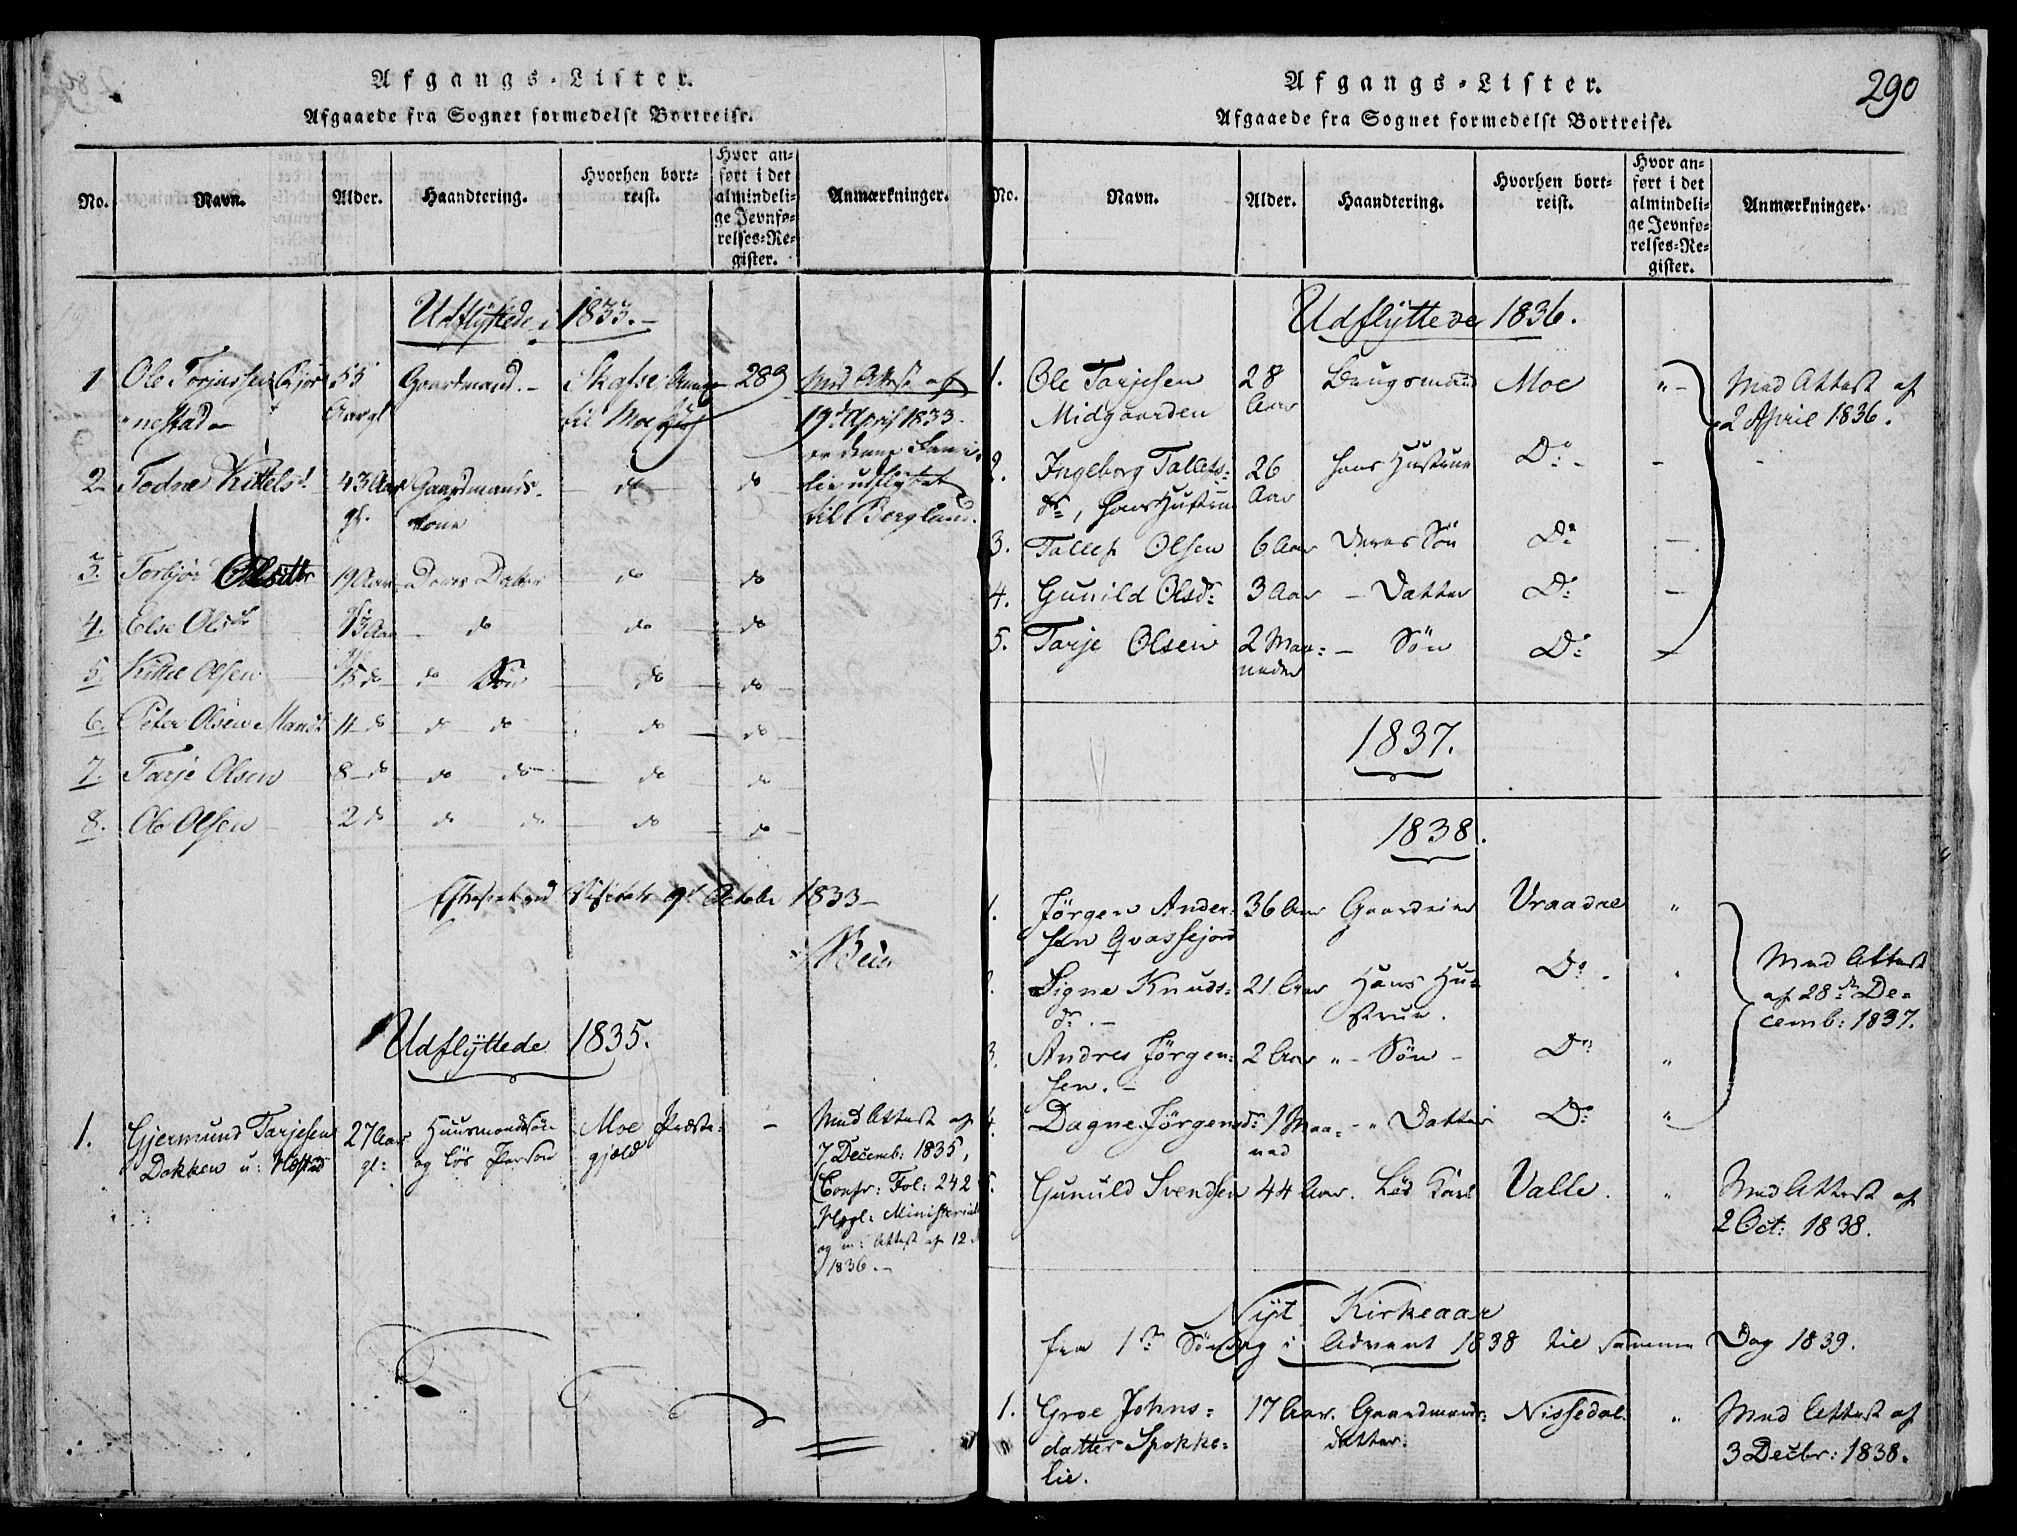 Afgangs-Lister.
Afgaaede fra Sognet formedelst Bortreise.
No. Navn. Alder. Haandtering. Hvorhen bortreist. Hvor anført i det almindelige Jevnførelses-Register. Anmærkninger.
Udflyttede i 1833.-
1 Ole Torjussen 55 Gaardmand.- 289 Med Attest af
nestad Aar gl til Moe 19d April 1833.
2 Kittelsd. 43 Aar Gaardmands- do do
gl. Kone til Bergland.
3. Torbjør Olsdtr 19 Aar Deres Datter do do
4. Else Olsdr do do do
5. Kittel Olsen 15 do do Søn do do
6. Peter Olsen 11 do do do do do
7. Tarje Olsen 8 do do do do do
8. Ole Olsen 2 do do do do do
Efterseet ved Visitats 9d Octobr 1833-
Udflyttede 1835.
1. Gjermund Tarjesen 27 Aar Huusmandssøn Moe Præste- - Med Attest af
Dokken u: gl: og løs Person gjæld 7 Decemb: 1835,
Confr: Fol: 242
Ministerial
og m: Attest af 12
1836.-
290
Afgangs-Lister.
Afgaaede fra Sognet formedelst Bortreise.
No. Navn. Alder. Haandtering. Hvorhen bortreist. Hvor anført i det almindelige Jevnførelses-Register. Anmærkninger.
Udflyttede 1836.
1. Ole Tarjesen 28 Moe " Med Attest af
Midgaarden Aar 2 April 1836.
2. Ingeborg Tallefs- 26 hans Hustrue Do -
dr, hans Hustrue Aar
3. Tallef Olsen 6 Aar Deres Søn Do -
4. Gunild Olsdr 3 Aar - Datter Do -
5. Tarje Olsen 2 Maa- - Søn Do -
neder
1837.
1838.
1. Jørgen Ander- 36 Aar Gaardeier Vraadal "
sen Qvassejord
2. Signe Knuds- 21 Aar Hans Hu- Do " Med Attest
dr. - strue. af 28de De-
cemb: 1837.
3. Andres Jørgen- 2 Aar " - Søn - Do "
sen. -
4. Dagne Jørgensdr 1 Maa- - " Datter Do "
ned
5. Gunuld Svendsen 44 Aar. Løs Karl Valle. " Med Attest af
2 Oct: 1838.
Nyt Kirkeaar
fra 1te Søndag i Advent 1838 til samme Dag 1839.
1. Groe Johns- 17 Aar. Gaardmands- Nissedal. " Med Attest af
datter Spokke- datter. 3 Decbr: 1838.
lie.